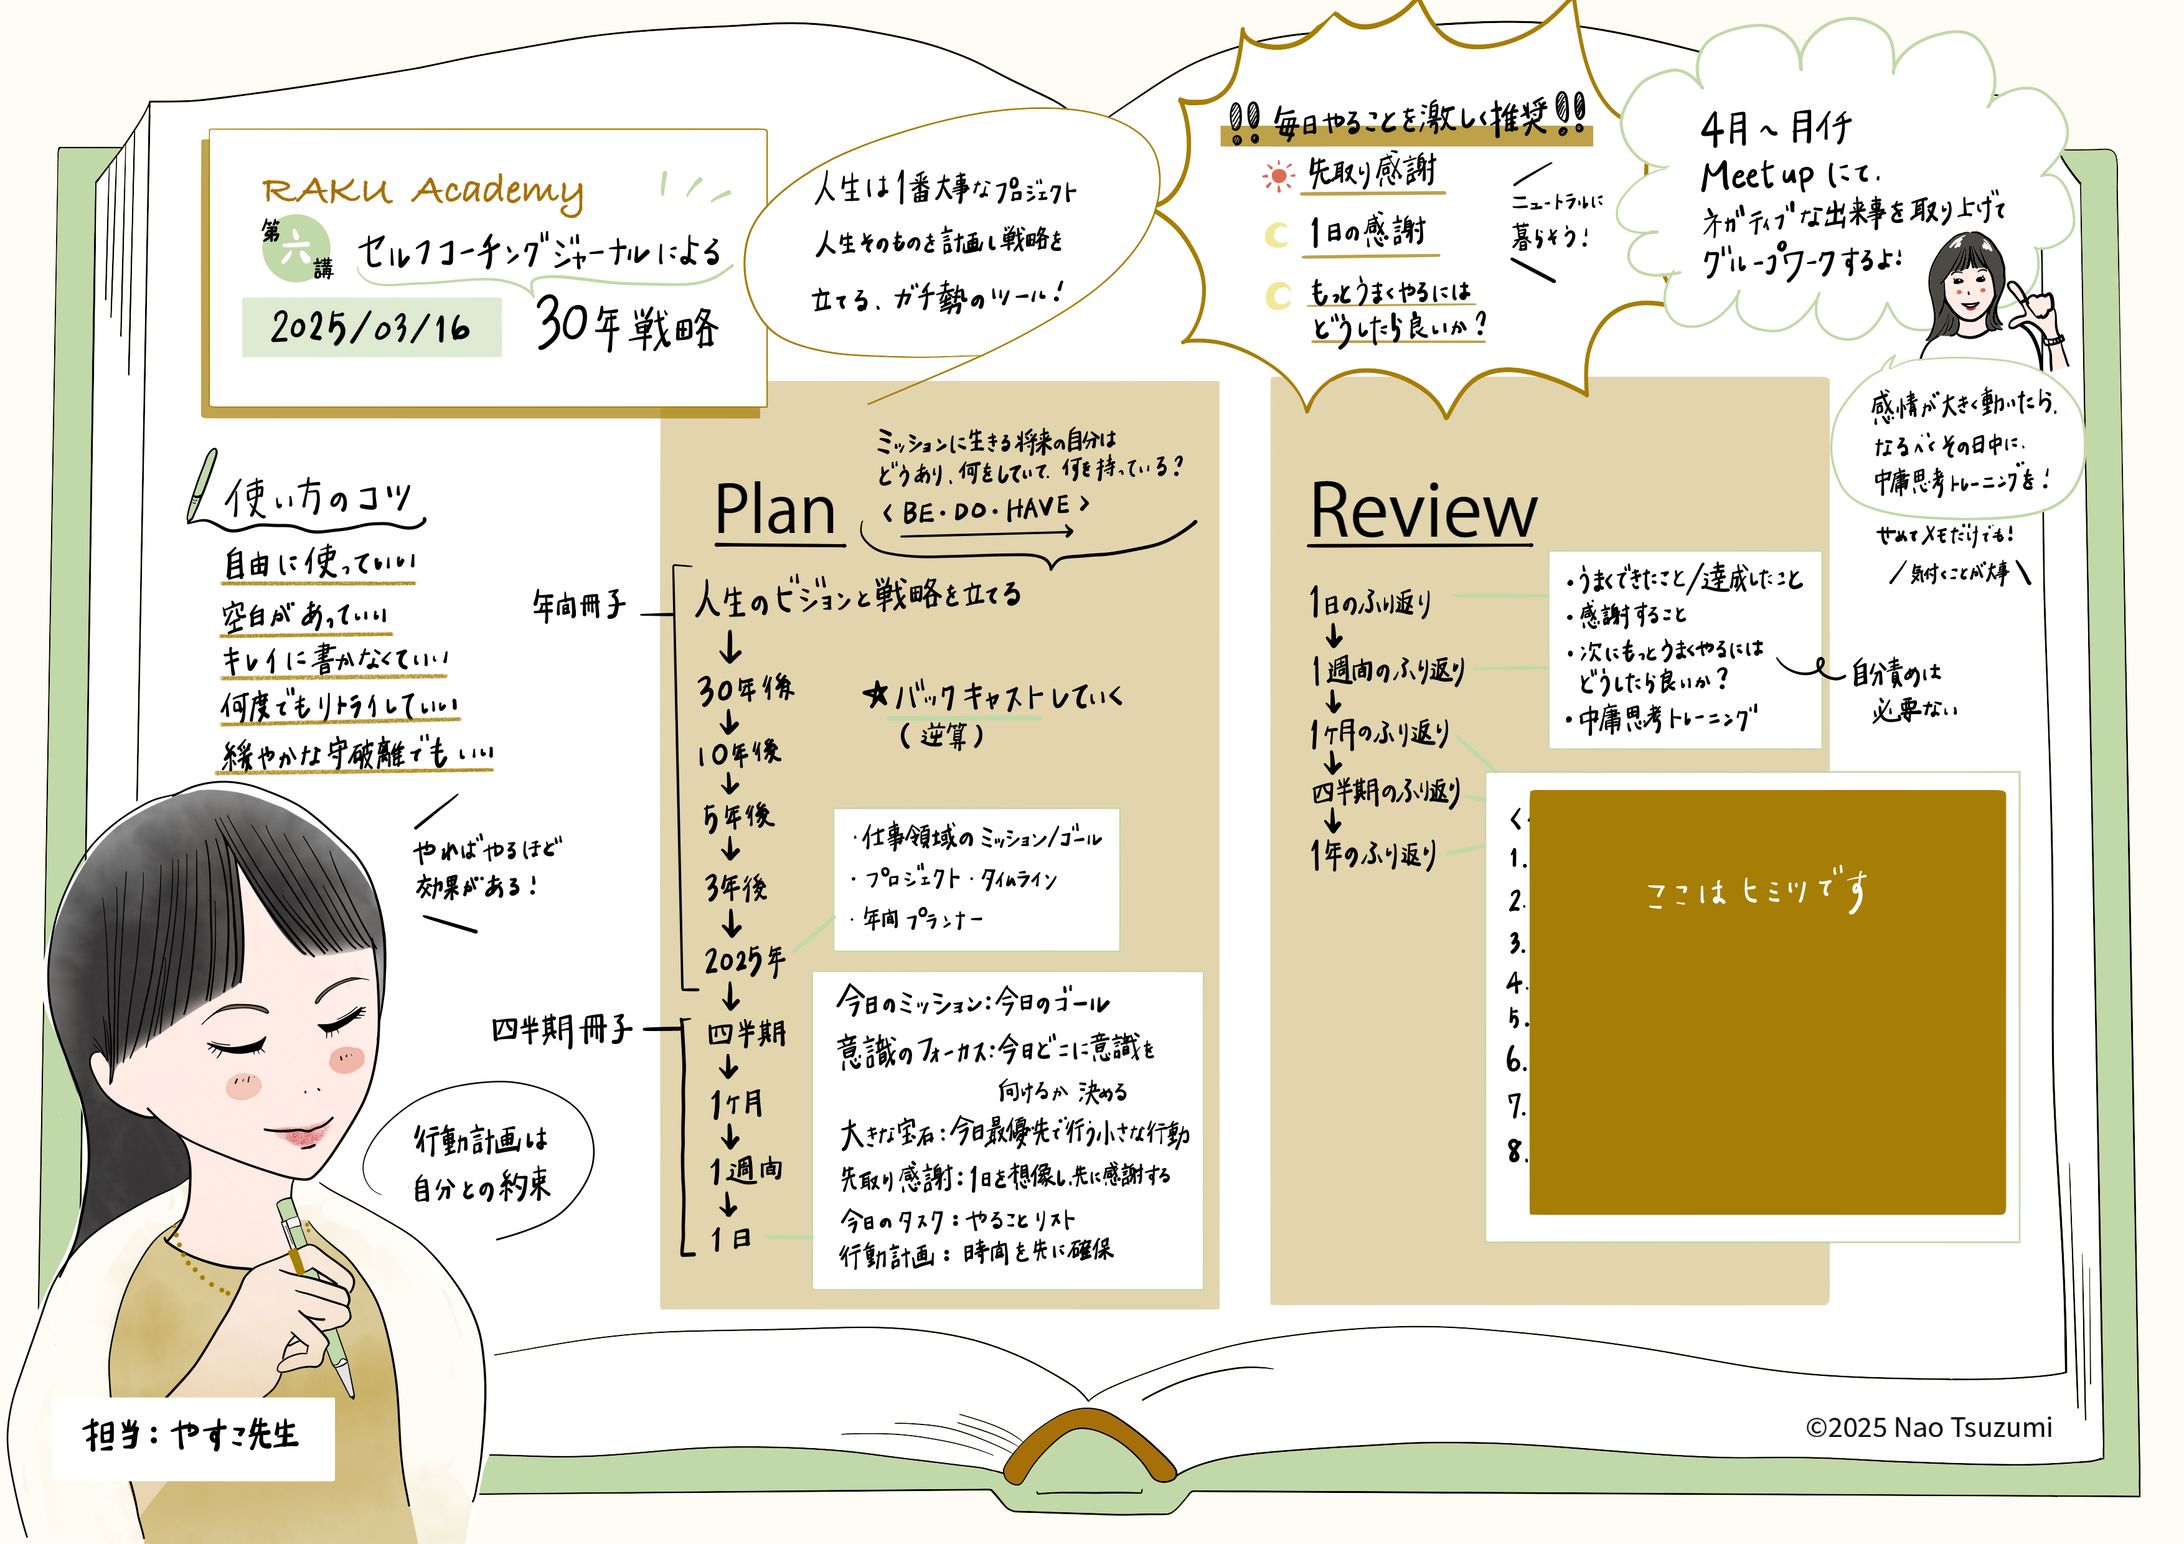 RAKU Academy
第六講
セルフコーチングジャーナルによる
2025/03/16
30年戦略
人生は1番大事なプロジェクト
人生そのものを計画し戦略を
立てる、ガチ勢のツール!
!! 毎日やることを激しく推奨 !!
先取り感謝
1日の感謝
もっとうまくやるには
どうしたら良いか?
ニュートラルに
暮らそう!
4月~月イチ
Meet upにて、
ネガティブな出来事を取り上げて
グループワークするよ!
感情が大きく動いたら、
なるべくその日中に、
中庸思考トレーニングを!
せめてメモだけでも!
気付くことが大事
使い方のコツ
自由に使っていい
空白があっていい
キレイに書かなくていい
何度でもリトライしていい
緩やかな守破離でもいい
やればやるほど
効果がある!
行動計画は
自分との約束
担当:やすこ先生
Plan
ミッションに生きる将来の自分は
どうあり、何をしていて、何を持っている?
<BE・DO・HAVE>
年間冊子
人生のビジョンと戦略を立てる
↓
30年後
↓
10年後
↓
5年後
↓
3年後
↓
2025年
↓
四半期冊子
四半期
↓
1ヶ月
↓
1週間
↓
1日
★バックキャストしていく
(逆算)
・仕事領域のミッション/ゴール
・プロジェクト・タイムライン
・年間プランナー
今日のミッション:今日のゴール
意識のフォーカス:今日どこに意識を
向けるか決める
大きな宝石:今日最優先で行う小さな行動
先取り感謝:1日を想像し、先に感謝する
今日のタスク:やることリスト
行動計画:時間を先に確保
Review
1日のふり返り
↓
1週間のふり返り
↓
1ヶ月のふり返り
↓
四半期のふり返り
↓
1年のふり返り
・うまくできたこと/達成したこと
・感謝すること
・次にもっとうまくやるには
どうしたら良いか?
・中庸思考トレーニング
自分責めは
必要ない
<
1.
2.
3.
4.
5.
6.
7.
8.
ここはヒミツです
©2025 Nao Tsuzumi